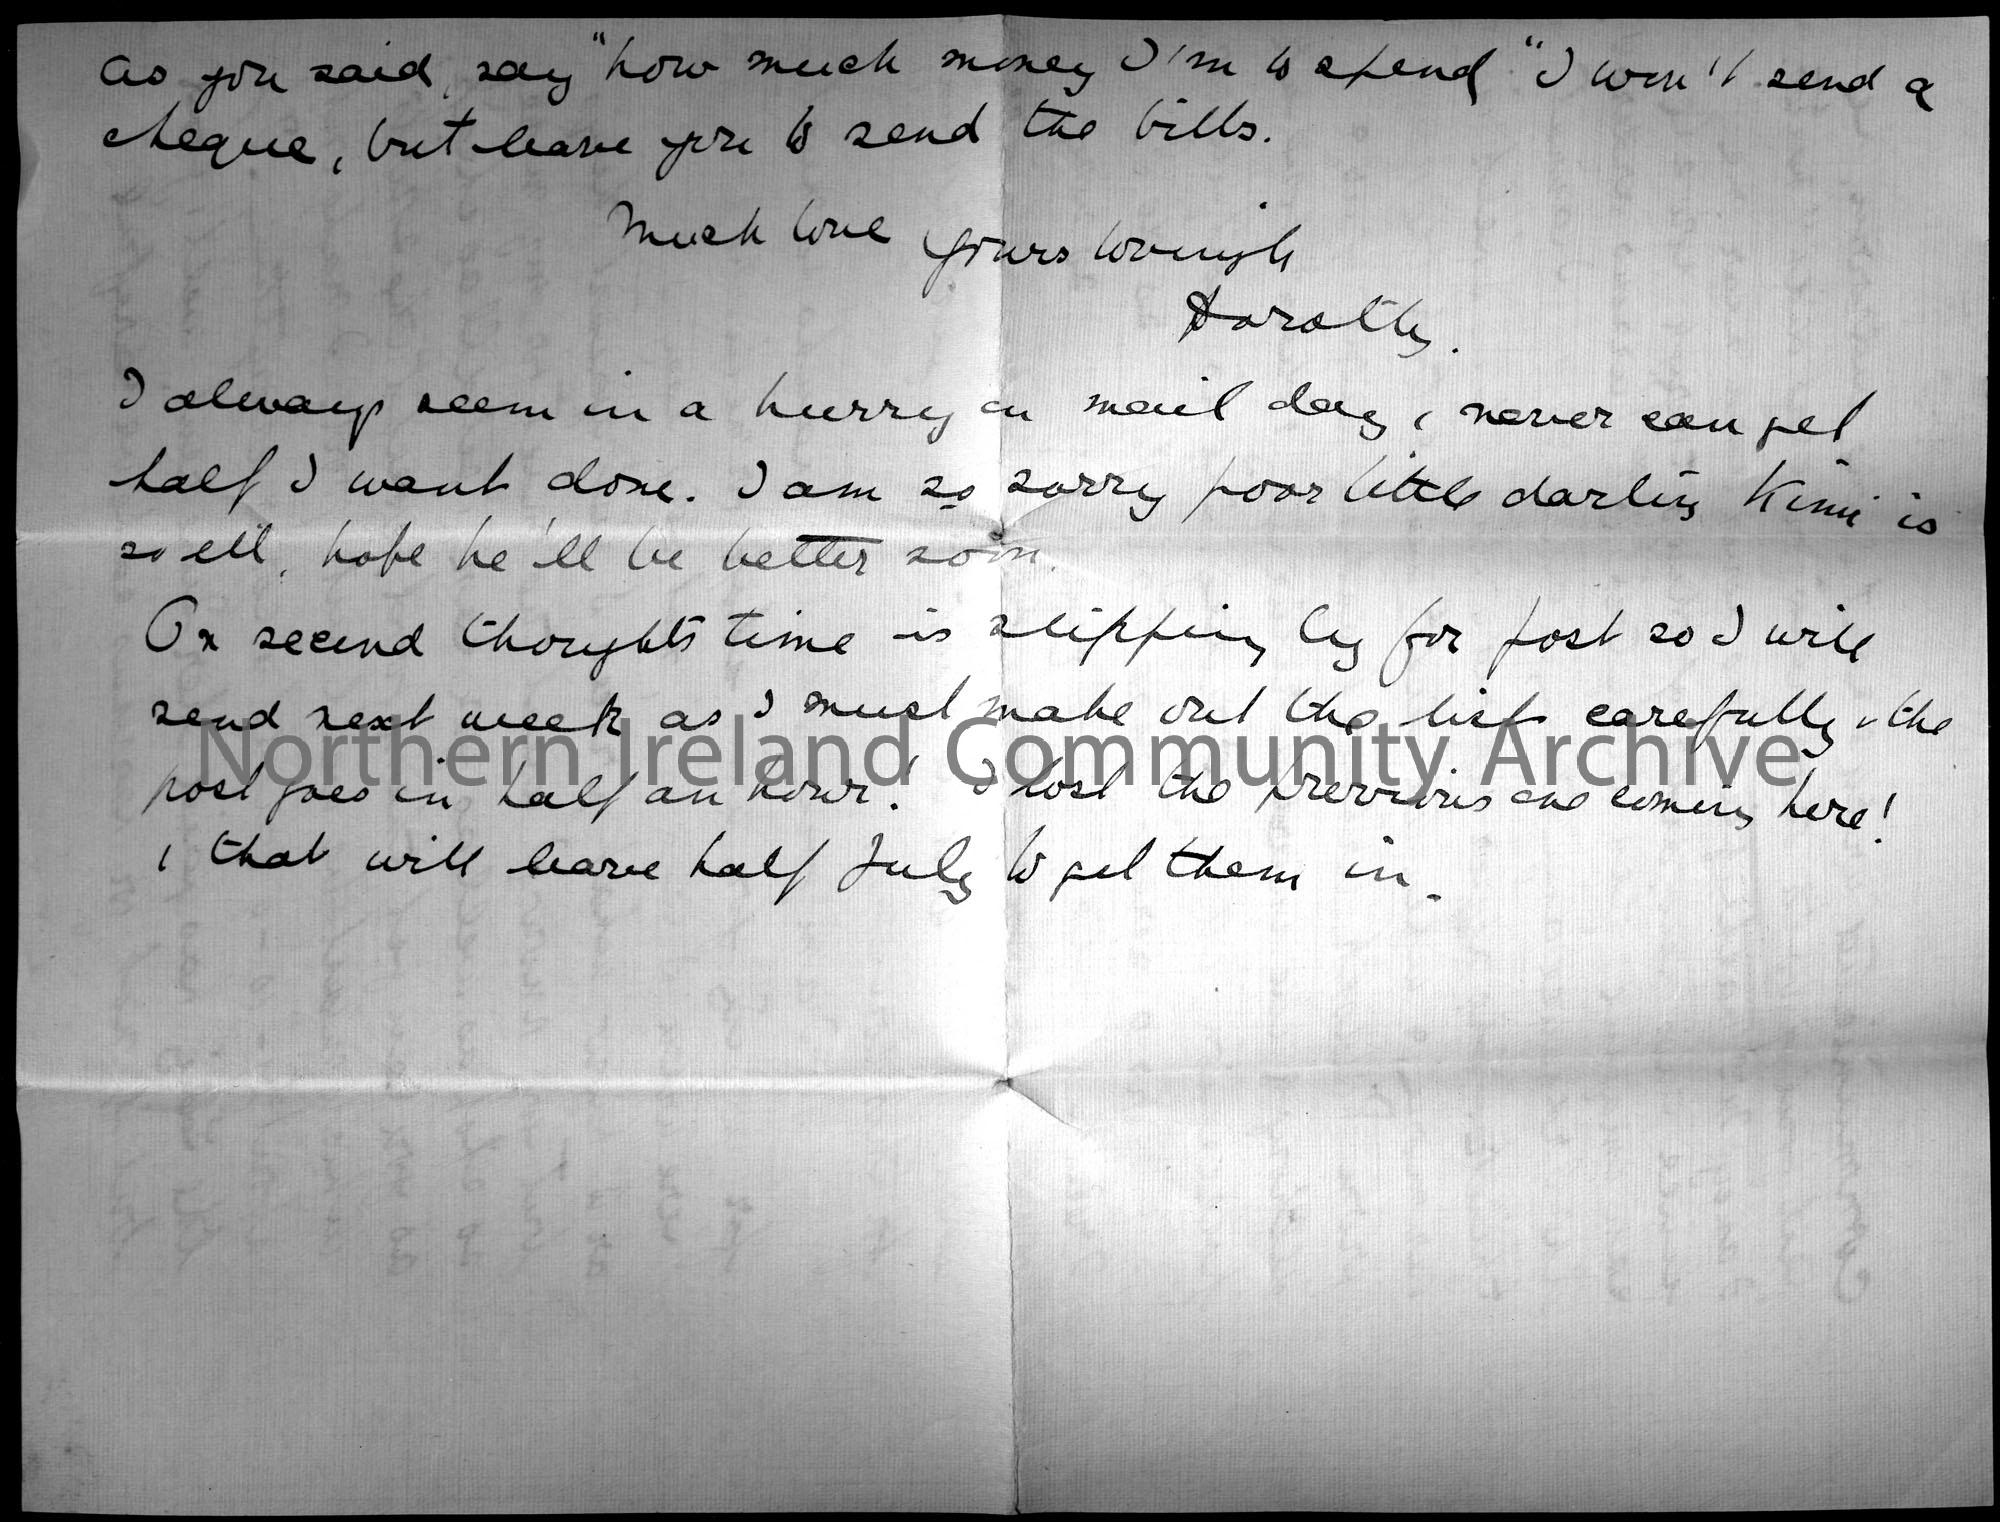 as you said, say "how much money I'm to spend" I won't send a
cheque, but leave you to send the bills.
Much love yours lovingly
Dorothy.
I always seem in a hurry on mail day, never can get
half I want done. I am so sorry poor little darling Kimi is
so ill, hope he'll be better soon.
On second thoughts time is slipping by for post so I will
send next week as I must make out the list carefully & the
Northern Ireland Community Archive
post goes in half an hour! I lost the previous one coming here!
& that will leave half July to get them in.